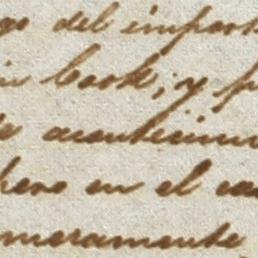 go del import
in Cook; y p
de acontecimi
pero en el ca
meramente